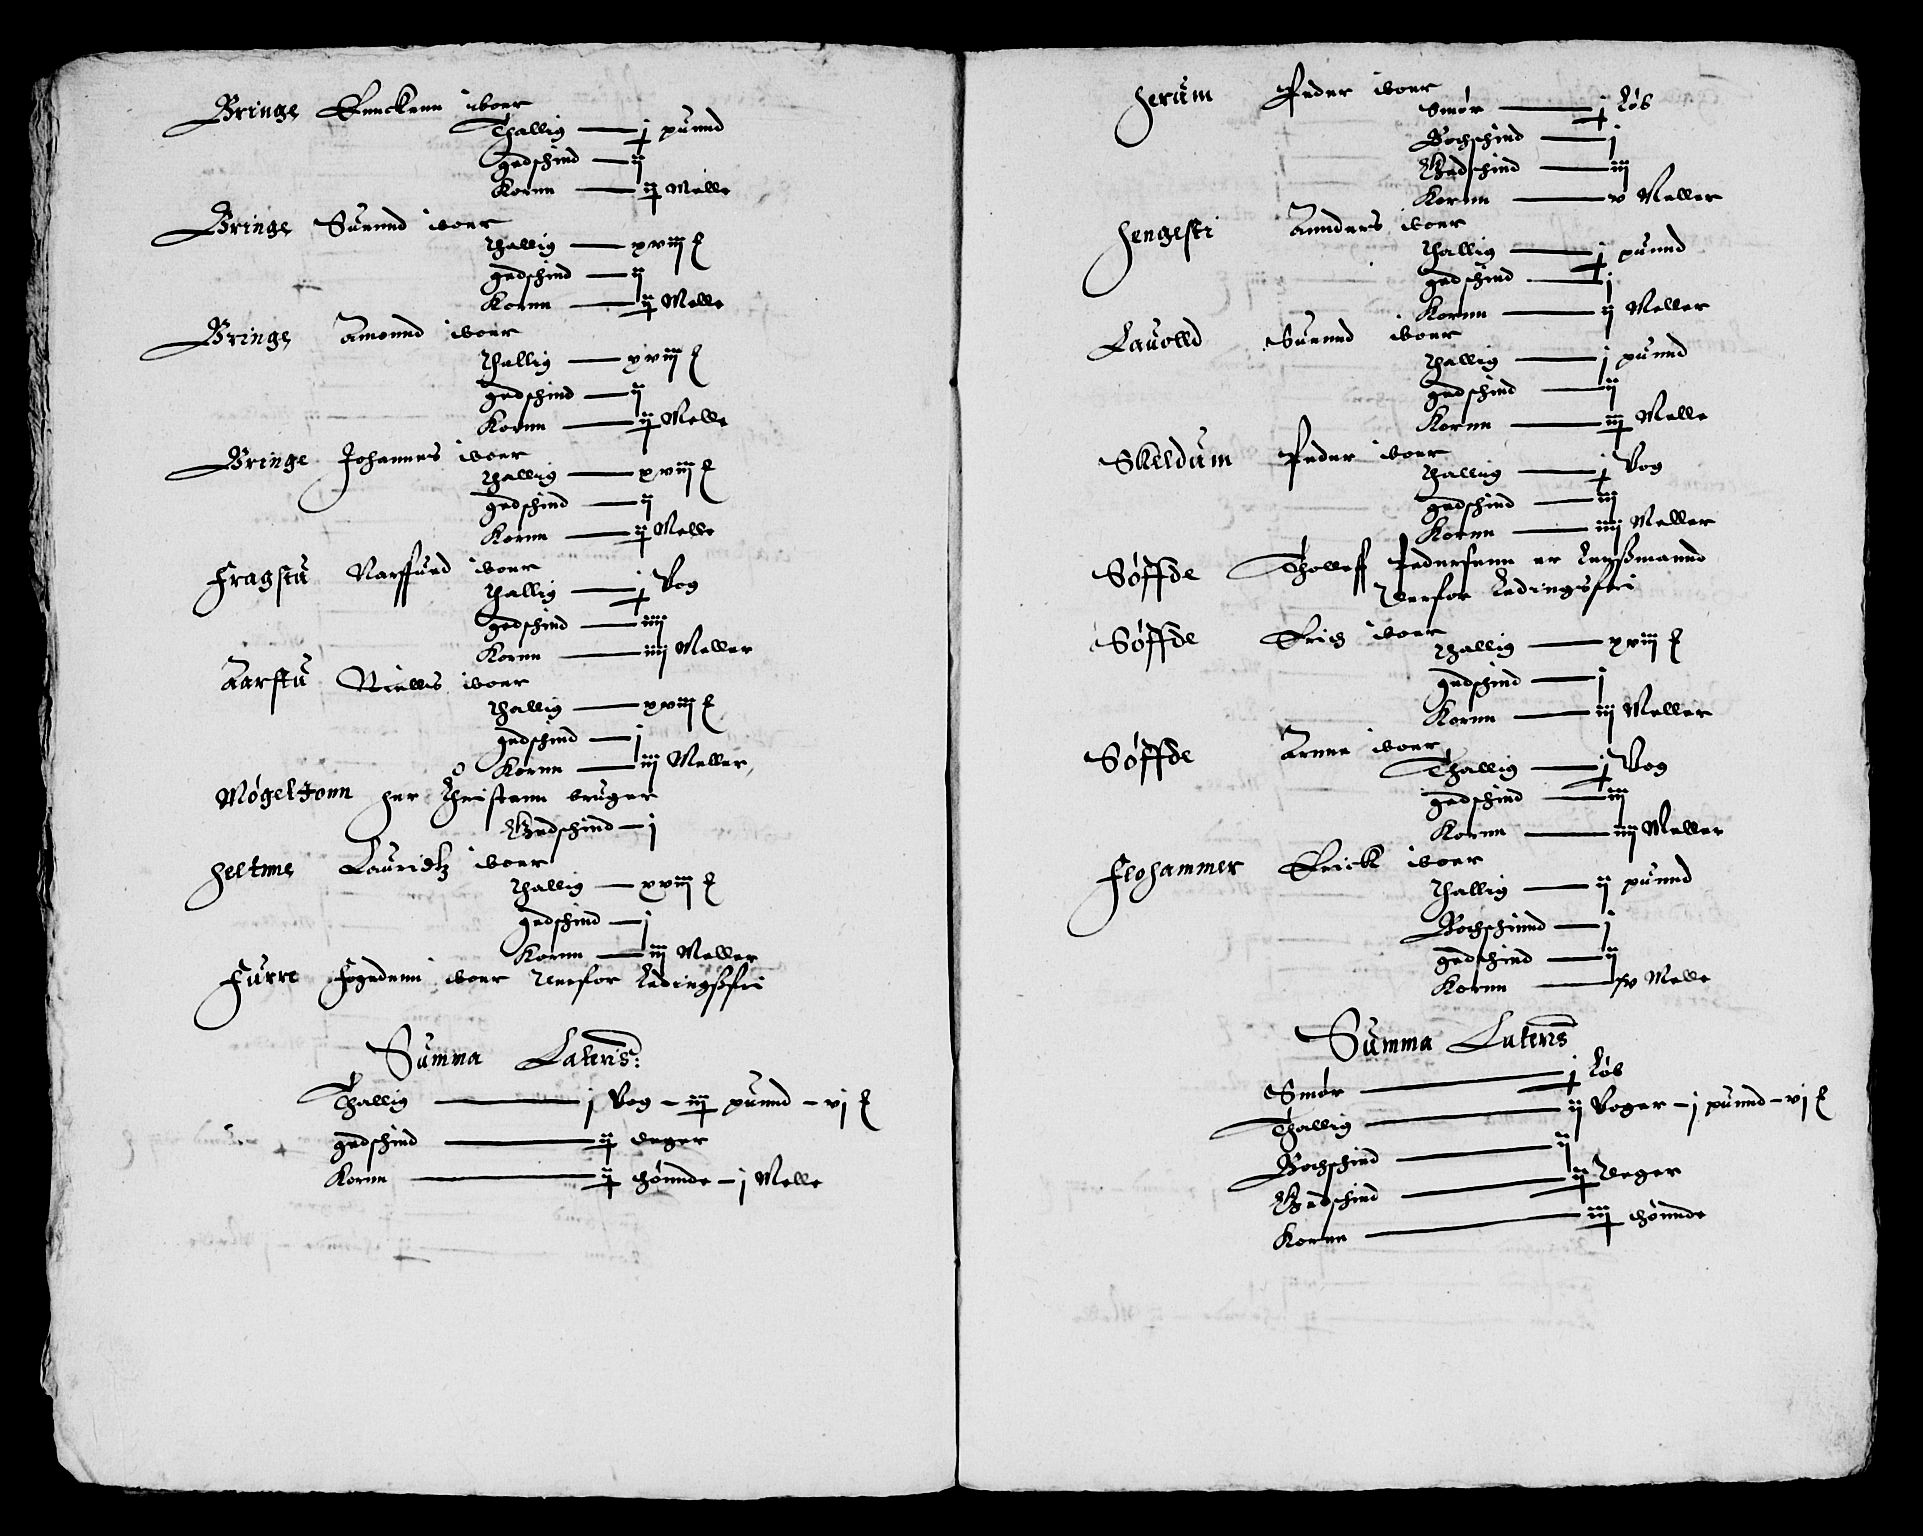 Bringe Enckenn iboer
Thallig — j puund
gedschind — ij
Kornn — ij Melle
Bringe Suennd iboer
Thallig — xviij ℔
gedschind — ij
Kornn — ij Melle
Bringe Amonnd iboer
Thallig — xviij ℔
gedschind — ij
Kornn — ij Melle
Bringe Johannes iboer
Thallig — xviij ℔
gedschind — ij
Kornn — ij Melle
Fragstu Narffued iboer
Thallig — j Vog
gedschind — iiij
Kornn — iiij Meller
Aarstu Niells iboer
Thallig — xviij ℔
gedschind — j
Kornn — iij Meller
Møgeltonn her Christenn bruger
Gedschind — j
heltme Lauridtz iboer
Thallig — xviij ℔
gedschind — j
Kornn — iij Meller
Furre fogedenn iboer Derfor Ledingsfri
Summa Lateris:
Thallig — j Vog – iij puund – vj ℔
gedschind — ij deger
Kornn — ij thønnde – j Melle
herum Peder iboer
Smør — j Løb
Bochschind — j
Gedschind — iij
Kornn — v Meller
hengesti Annders iboer
Thallig — j puund
gedschind — j
Kornn — ij Meller
Lauolld Suennd iboer
Thallig — j puund
gedschind — ij
Kornn — iij Melle
Skeldum Peder iboer
Thallig — j Vog
gedschind — iij
Kornn — iiij Meller
Søffde Tholleff Pedersenn er Lenßmannd
Derfor Ledingsfri
Søffde Erig iboer
Thallig — xviij ℔
gedschind — j
Kornn — iij Meller
Søffde Arne iboer
Thallig — j Vog
gedschind — iij
Kornn — iiij Meller
Flohammer Erick iboer
Thallig — ij puund
Bochschinnd — j
gedschind — ij
Kornn — v Melle
Summa Lateris
Smør — j Løb
Thallig — ij Voger – j puund – vj ℔
Bochschind — ij
Gedschind — ij Deger
Kornn — iij thønnde